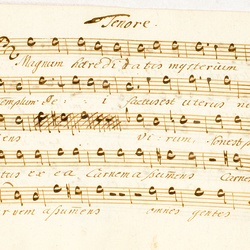 Tenore.
Magnum hæredidatis mysterium
Templum De- i factus est uterus ne
ens virum. Non est p
tus ex ea Carnem assumens Carne
rnem assumens omnes gentes